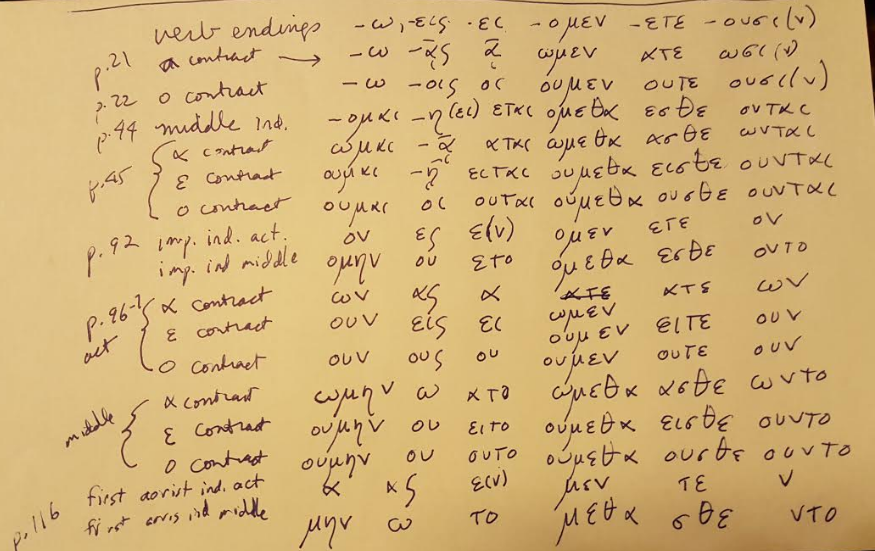 verb endings -ω, -εις -ει -ομεν -ετε -ουσι(ν)
p.21 α contract → -ω -ᾱͅς ᾱͅ ωμεν ατε ωσι(ν)
p.22 ο contract -ω -οις οι ουμεν ουτε ουσι(ν)
p.44 middle ind. -ομαι -η(ει) εται ομεθα εσθε ονται
p.45 { α contract ωμαι -ᾱͅ αται ωμεθα ασθε ωνται
ε contract ουμαι -ῃ̄ ειται ουμεθα εισθε ουνται
ο contract ουμαι οι ουται ουμεθα ουσθε ουνται
p.92 imp. ind. act. ον ες ε(ν) ομεν ετε ον
imp. ind middle ομην ου ετο ομεθα εσθε οντο
p.96-7 act { α contract ων ας α ωμεν ατε ων
ε contract ουν εις ει ουμεν ειτε ουν
ο contract ουν ους ου ουμεν ουτε ουν
middle { α contract ωμην ω ατο ωμεθα ασθε ωντο
ε contract ουμην ου ειτο ουμεθα εισθε ουντο
ο contract ουμην ου ουτο ουμεθα ουσθε ουντο
p.116 first aorist ind. act α ας ε(ν) μεν τε ν
first aoris ind middle μην ω το μεθα σθε ντο